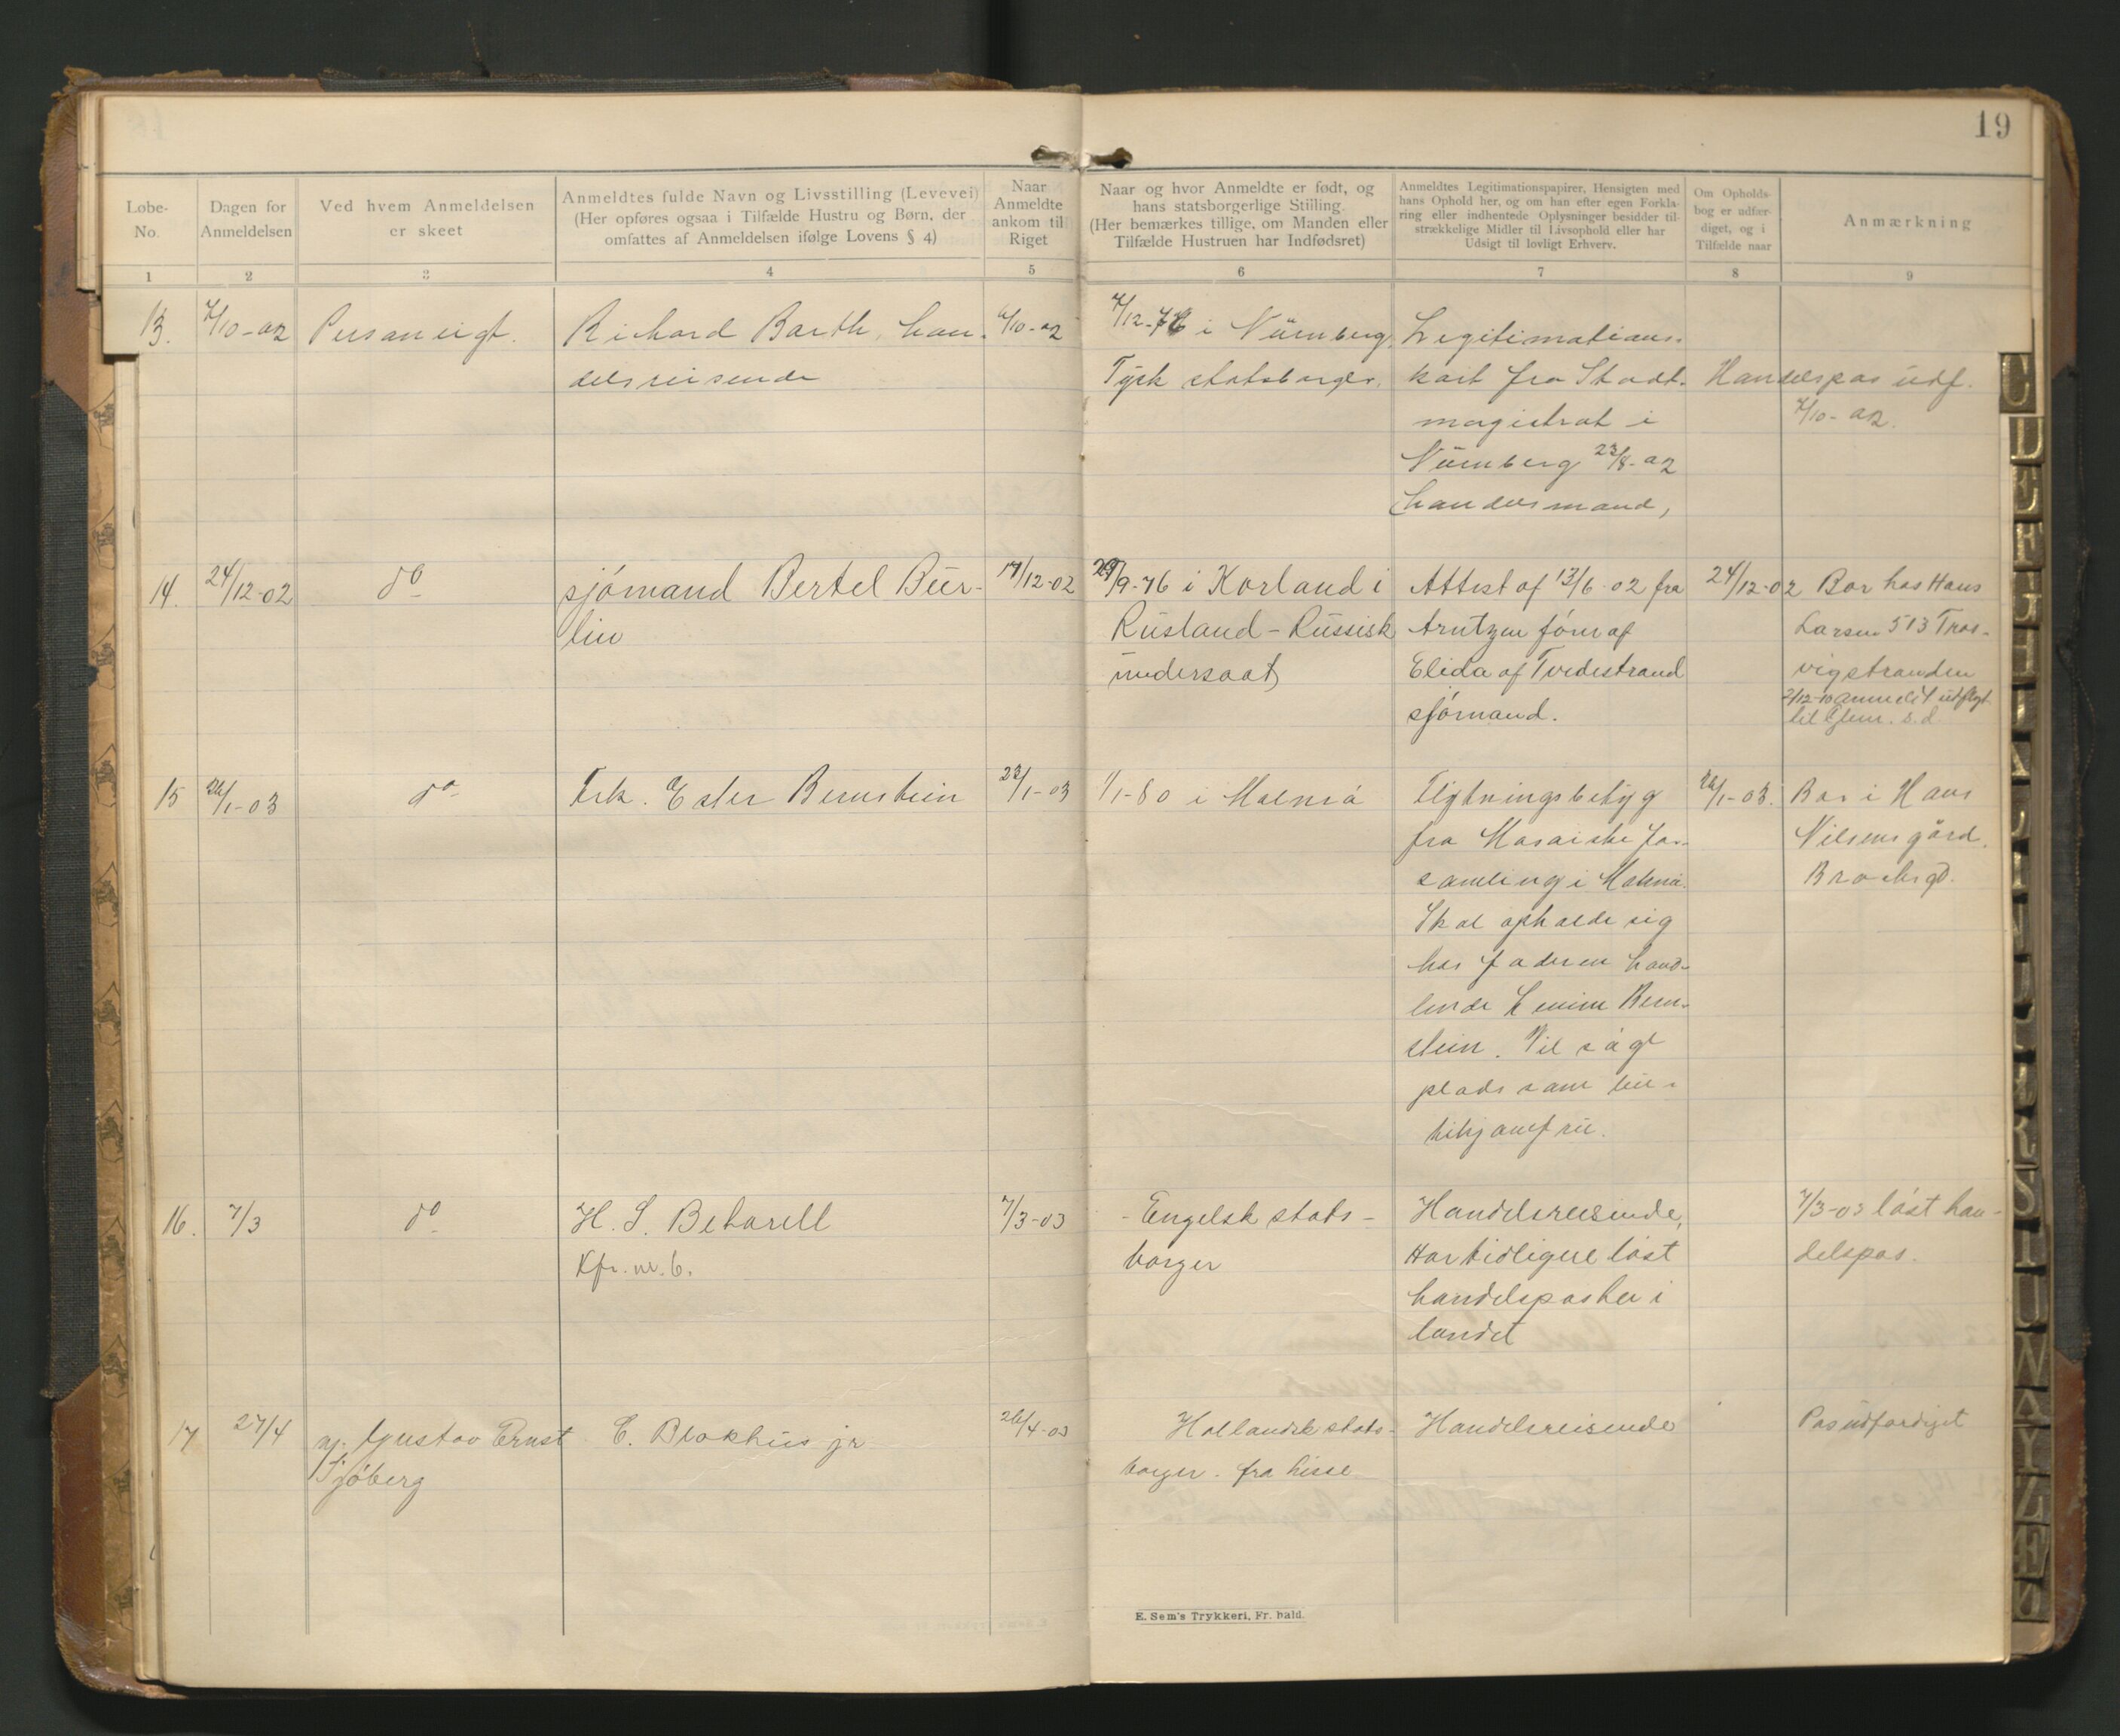 19
Løbe-
No.
Dagen for
Anmeldelsen
Ved hvem Anmeldelsen
er skeet
Anmeldtes fulde Navn og Livsstilling (Levevei)
(Her opføres ogsaa i Tilfælde Hustru og Børn, der
omfattes af Anmeldelsen ifølge Lovens § 4)
Naar
Anmeldte
ankom til
Riget
Naar og hvor Anmeldte er født, og
hans statsborgerlige Stilling.
(Her bemærkes tillige, om Manden eller
Tilfælde Hustruen har Indfødsret)
Anmeldtes Legitimationspapirer, Hensigten med
hans Ophold her, og om han efter egen Forkla-
ring eller indhentede Oplysninger besidder til-
strækkelige Midler til Livsophold eller har
Udsigt til lovligt Erhverv.
Om Opholds-
bog er udfær-
diget, og i
Tilfælde naar
Anmærkning
1 2 3 4 5 6 7 8 9
13.
7/10-02
Personligt.
Richard Barth, han-
delsreisende
6/10-02
7/12-76 i Nürnberg.
Tysk statsborger.
Legitimations-
kort fra Stadt-
magistrat i
Nürnberg 23/8-02
handelsmand,
Handelspas udf.
7/10-02.
14.
24/12-02
do
sjömand Bertel Bür-
lin
17/12-02
29/9-76 i Korland i
Rusland - Russisk
undersaat
Attest af 13/6-02 fra
Arntzen förer af
Elida af Tvedestrand
sjömand.
24/12-02
Bor hos Hans
Larsen 513 Tros-
vigstranden
2/12-10 anmeldt udflyt
til Glem. s.d.
15
26/1-03
do
Frk. Ester Bernstein
23/1-03
1/1-80 i Malmö
Flytningsbetyg
fra Mosaiske for-
samling i Malmö.
Skal opholde sig
hos faderen hand-
lende Bern-
stein. Vil søge
plads som bu-
tikjomfru.
26/1-03.
Bor i Hans
Nilsens gård.
Brochsgd.
16.
7/3
do
H. S. Beharell
Kfr. nr. 6.
7/3-03
- Engelsk stats-
borger
Handelsreisende,
Har tidligere løst
handelspas her i
landet
7/3-03 løst han-
delspas.
17
27/4
Gustav Ernst
Sjöberg
E. Blokhuis jr
26/4-03
Hollandsk stats-
borger. fra
Handelsreisende
Pas udfærdiget
E. Sem's Trykkeri, Fr. hald.
C
D
E
F
G
H